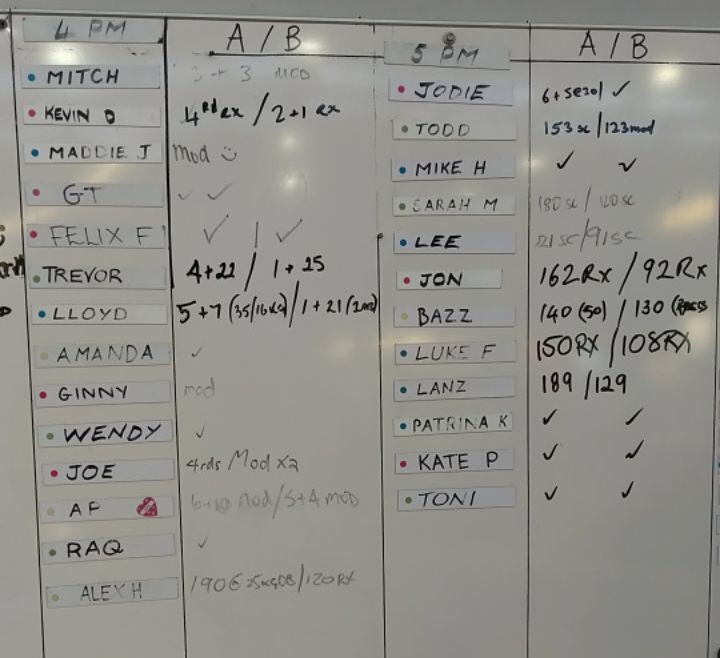 4 PM
A / B
MITCH
3 + 3 MOD
KEVIN D
4 Rd Rx / 2+1 Rx
MADDIE J
Mod
GT
✓ ✓
FELIX F
✓ | ✓
TREVOR
4+22 / 1 + 25
LLOYD
5+7 (35/16KG) / 1 + 21
AMANDA
✓
GINNY
mod
WENDY
✓
JOE
4rds / Mod x2
AF
Mod / 5+4 MOD
RAQ
✓
ALEX H
190 @ 25KGDB / 120 RX
5 PM
A / B
JODIE
✓
TODD
153 sc / 123 mod
MIKE H
✓ ✓
SARAH M
180 SC / 120 SC
LEE
SC / 91 SC
JON
162 Rx / 92 Rx
BAZZ
140 (50) / 130
LUKE F
150 RX / 108 RX
LANZ
189 / 129
PATRINA K
✓ ✓
KATE P
✓ ✓
TONI
✓ ✓